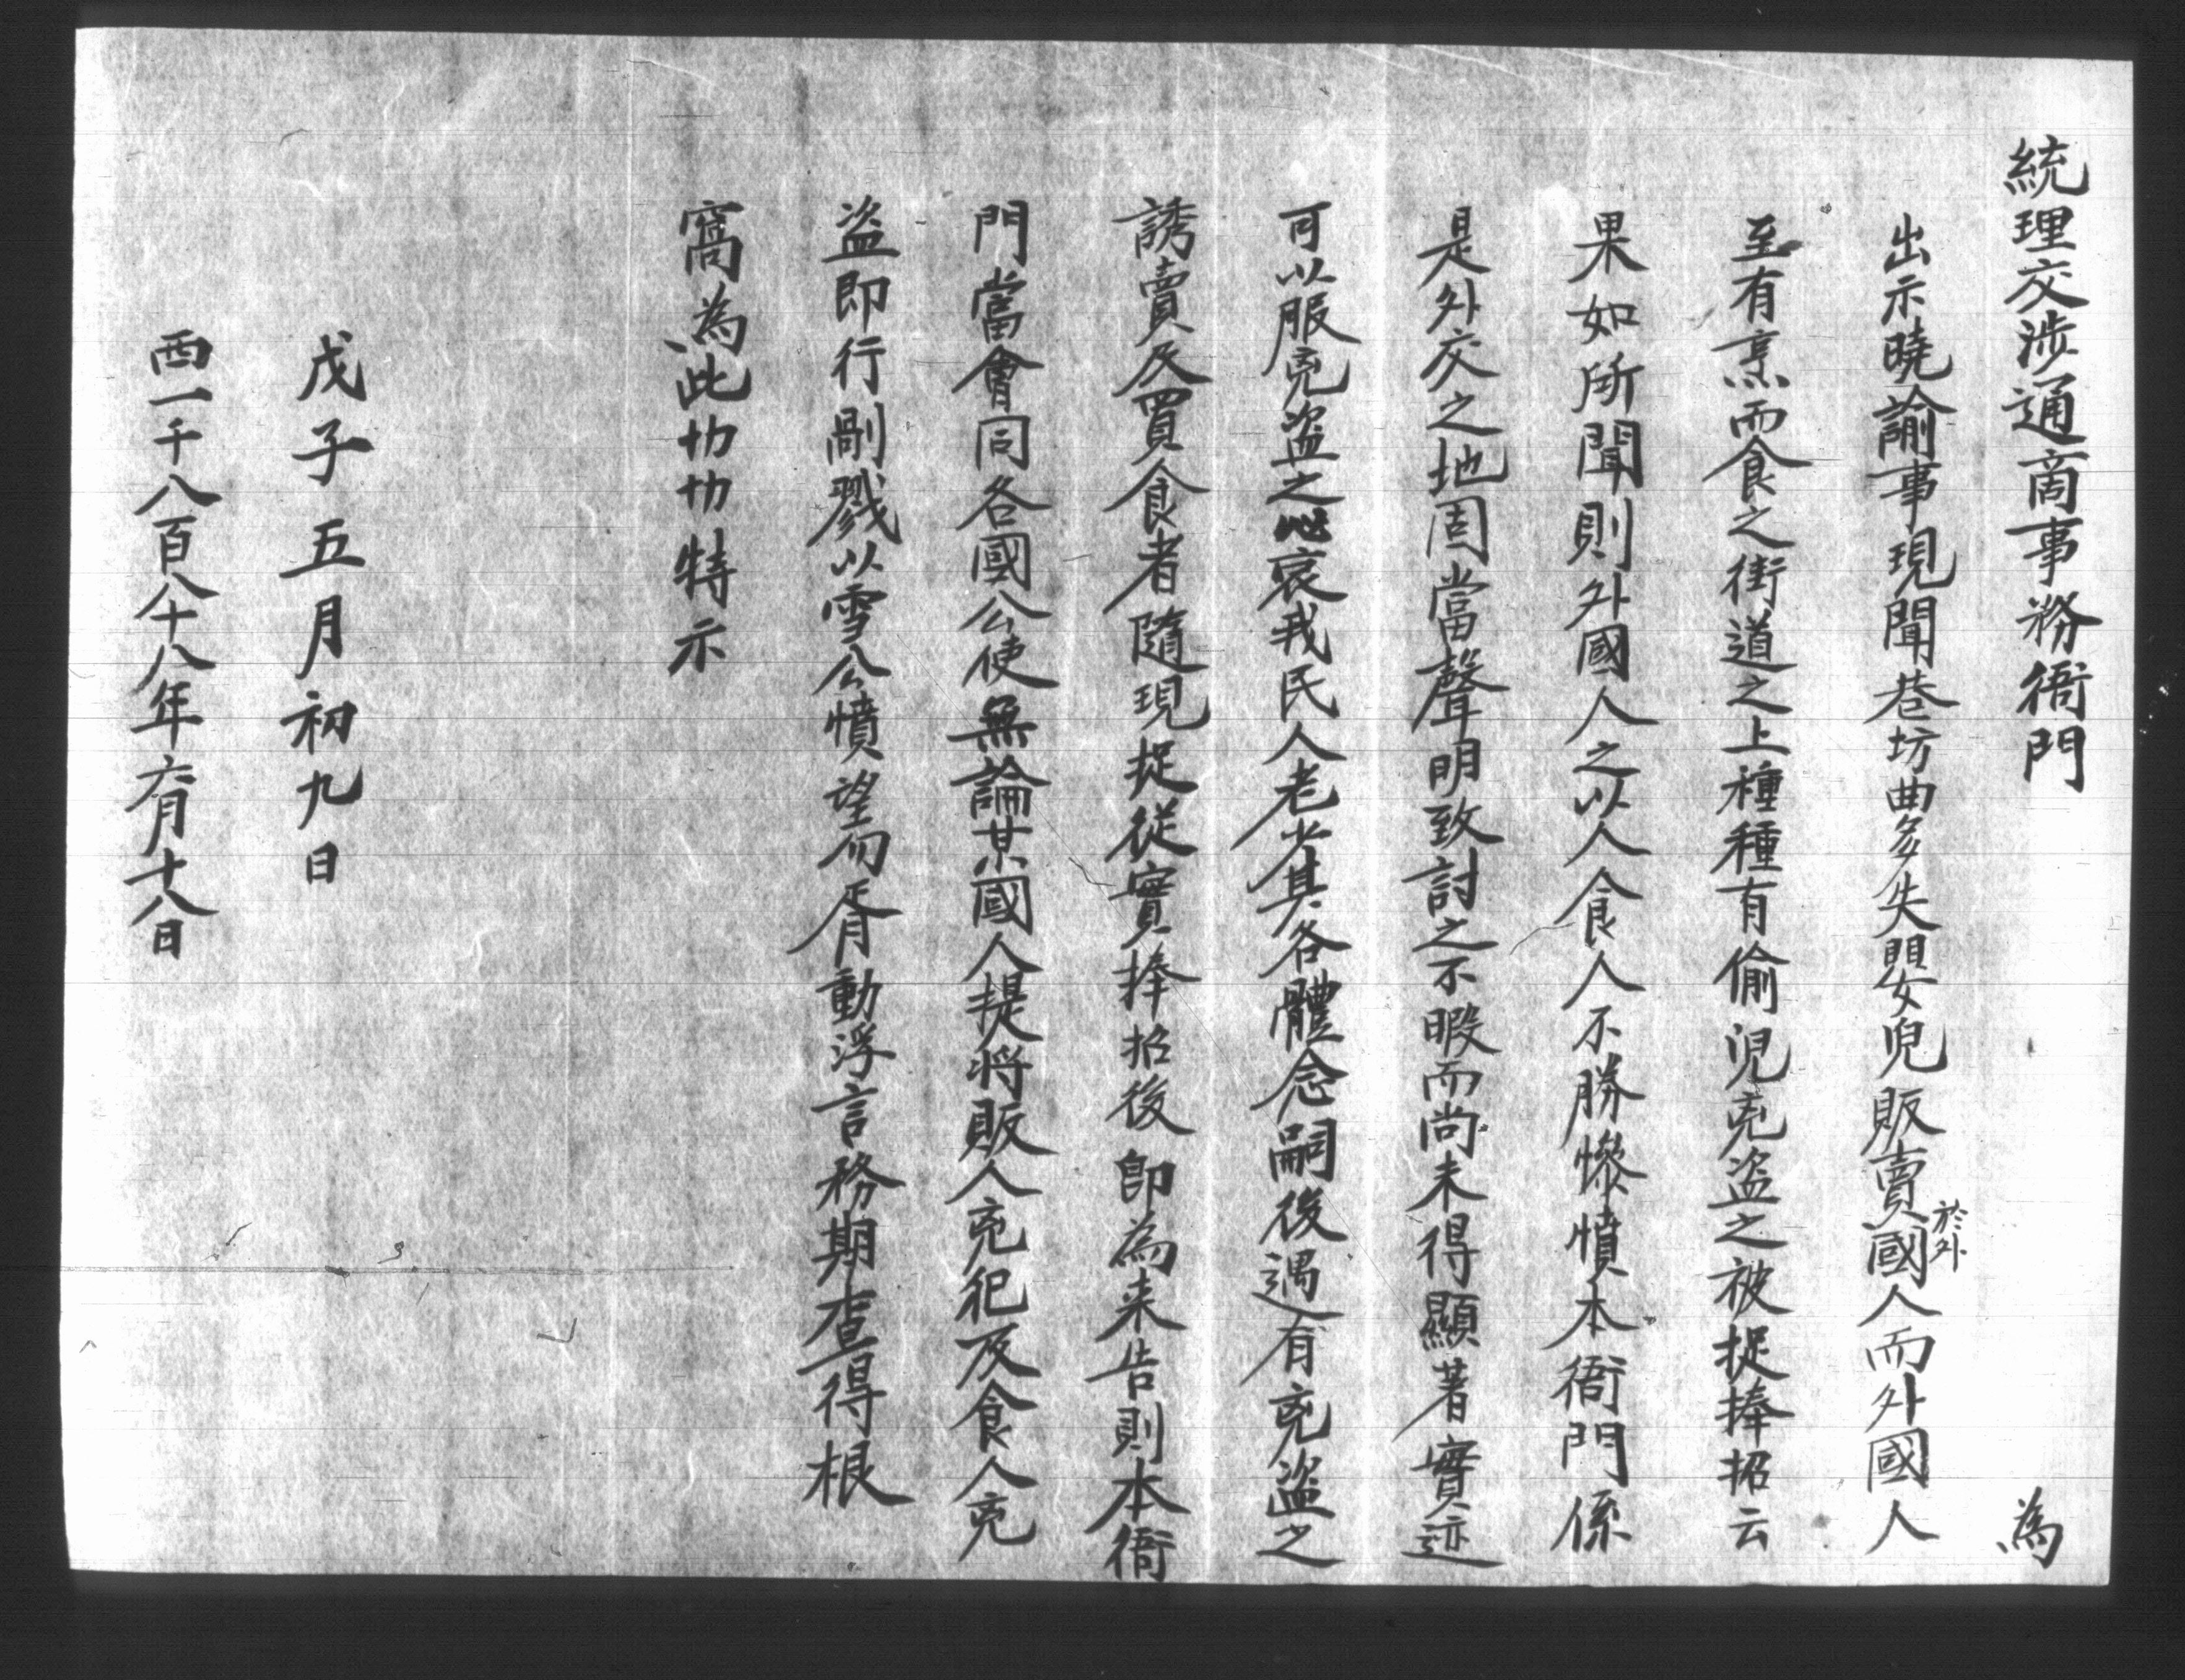 統理交涉通商事務衙門 為
出示曉諭事現聞巷坊曲多失嬰兒販賣於外國人而外國人
至有烹而食之街道之上種種有偷児兇盜之被捉捧招云
果如所聞則外國人之以人食人不勝慘憤本衙門係
是外交之地固當聲明致討之不暇而尚未得顯著實迹
可以服兇盜之心哀我民人老少其各體念嗣後遇有兇盜之
誘賣及買食者隨現捉從實捧招後即為来告則本衙
門當會同各國公使無論某國人提将販人兇犯及食人兇
盜即行剮戮以雪公憤望勿胥動浮言務期查得根
窩為此切切特示
戊子五月初九日
西一千八百八十八年六月十八日